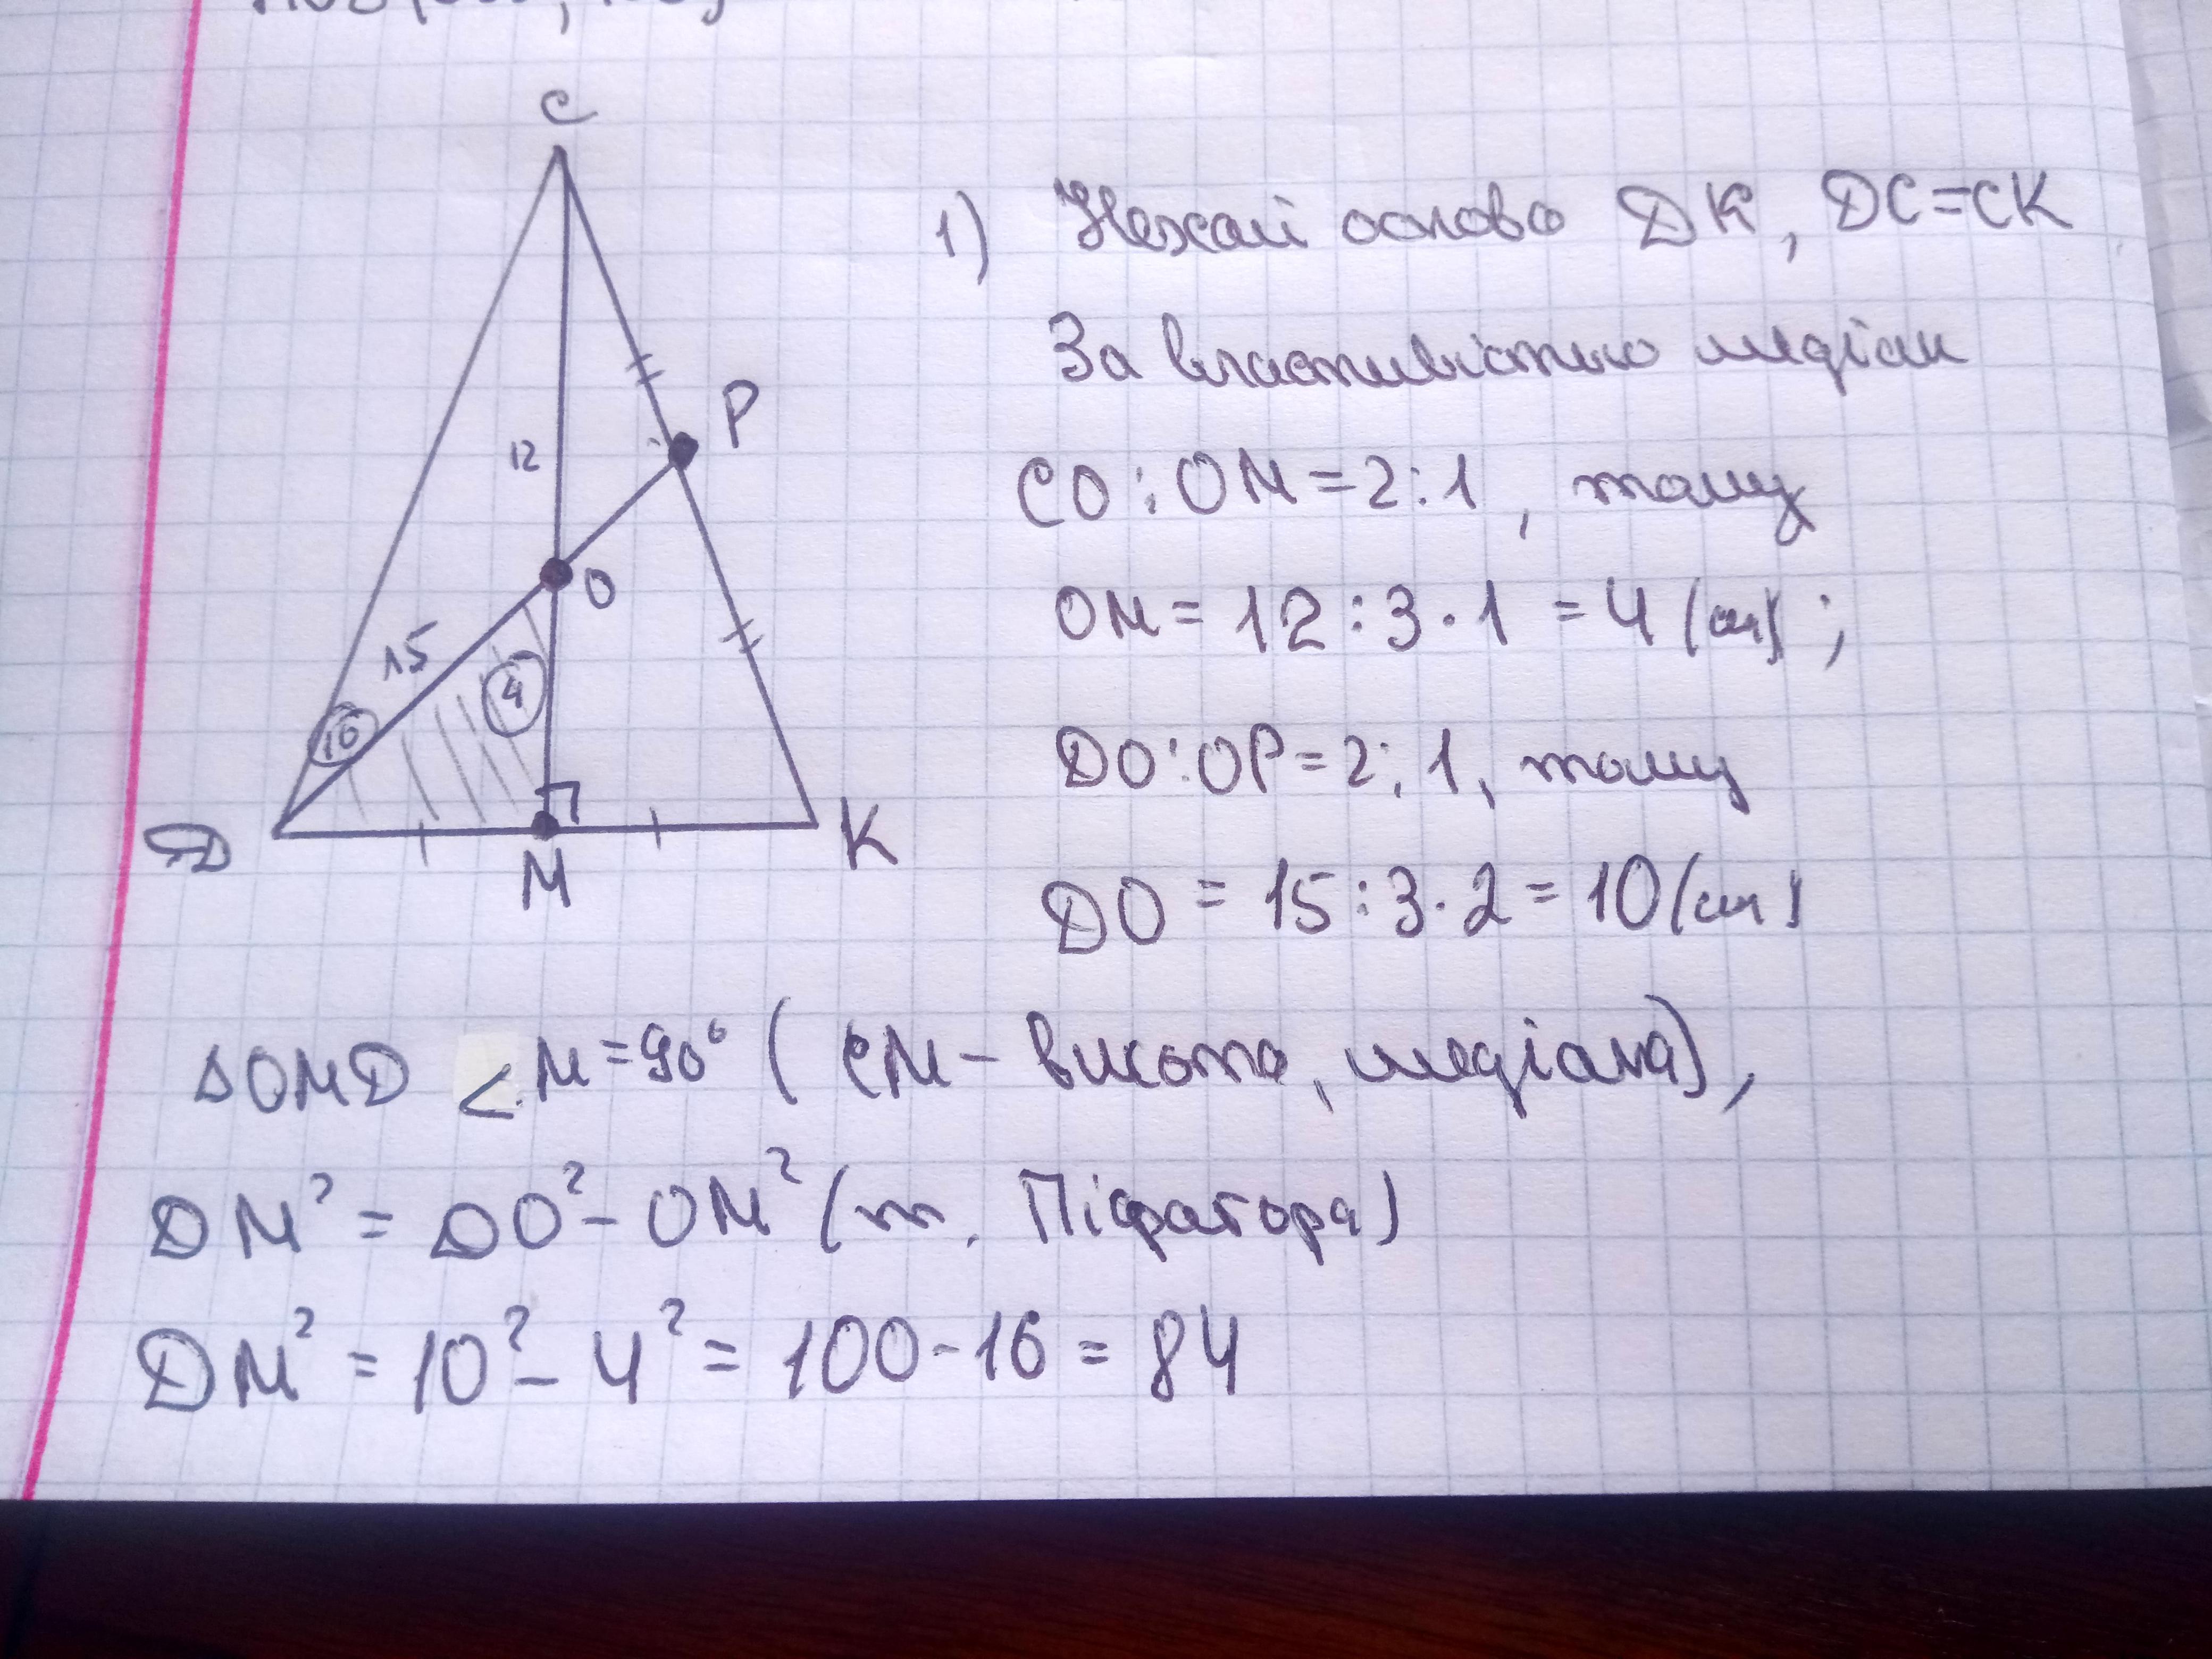 C
1) Нехай основа DK, DC=CK
За властивістю медіан
P
12
CO:OM=2:1, тому
O
OM=12:3·1=4(см);
15
4
10
DO:OP=2:1, тому
D
M
K
DO=15:3·2=10(см)
ΔOMD <M=90° (CM-висота, медіана),
DM²=DO²-OM² (т. Піфагора)
DM²=10²-4²=100-16=84